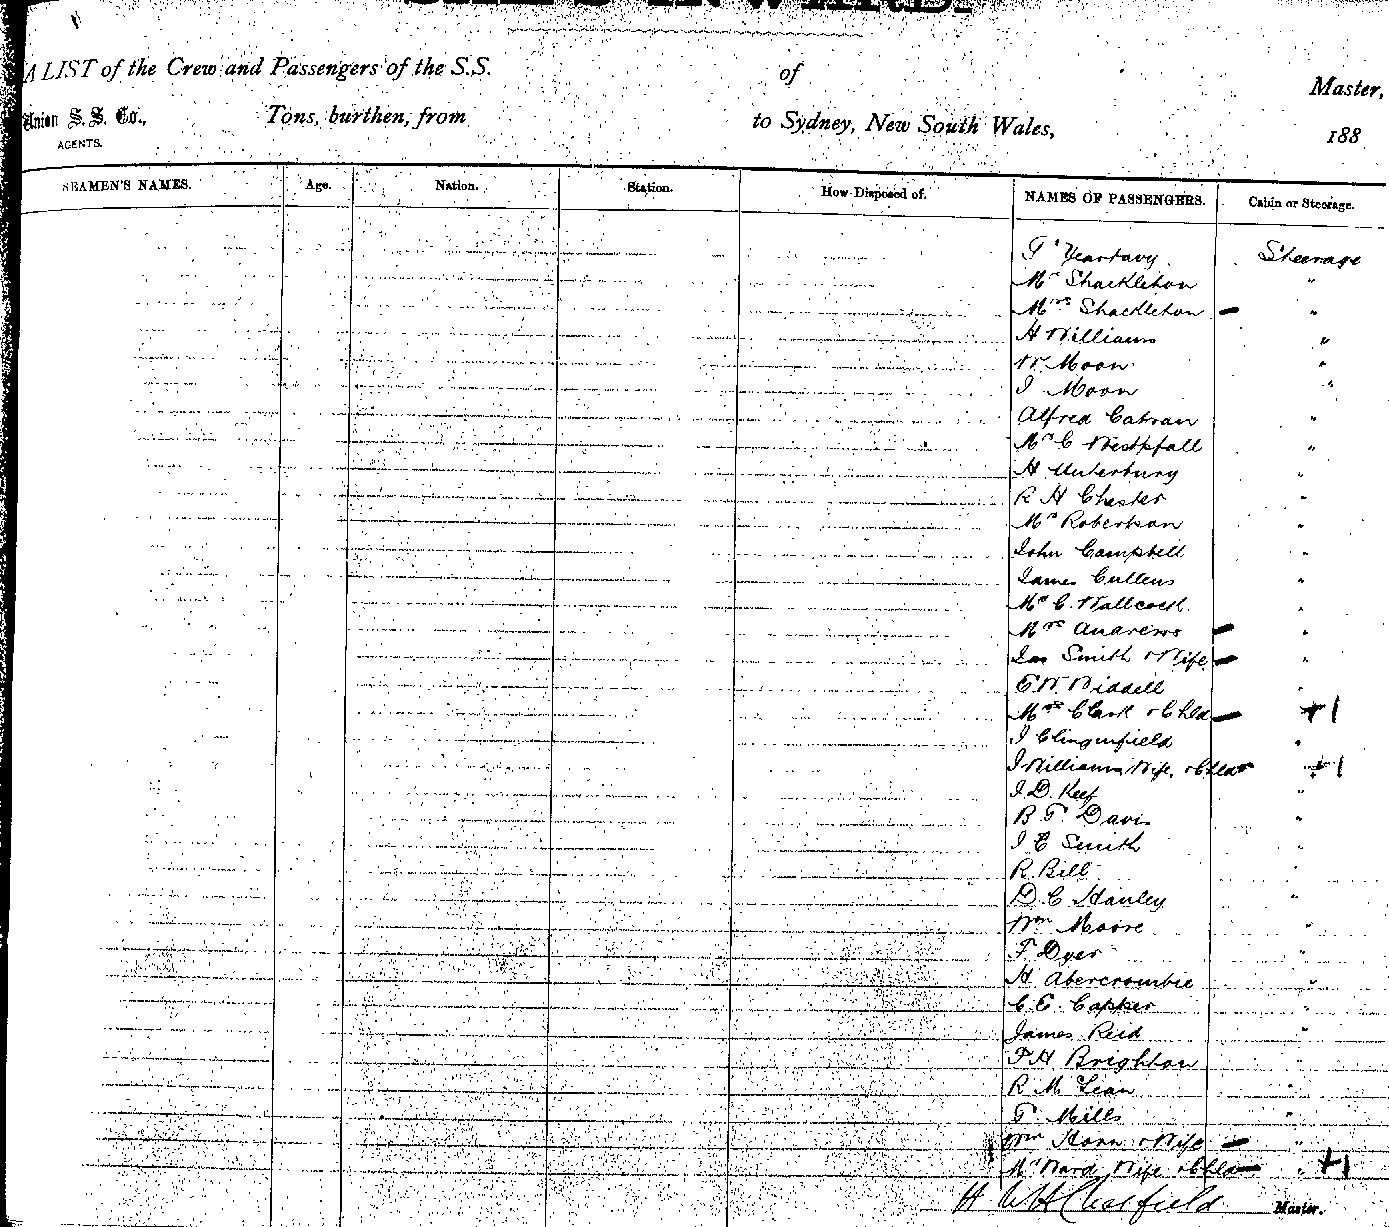 A LIST of the Crew and Passengers of the S.S. of Master,
Union S. S. Co., Tons, burthen, from to Sydney, New South Wales, 188
AGENTS.
SEAMEN'S NAMES. Age. Nation. Station. How Disposed of. NAMES OF PASSENGERS. Cabin or Steerage.
T Steerage
Mr Shackleton "
Mrs Shackleton - "
H Williams "
W Moon "
J Moon "
Alfred Catran "
Mr C Westpfall "
H "
R H Chester "
Mr Robertson "
John Campbell "
James Cullens "
Mr C. Wallcock "
Mrs Andrews - "
Jas Smith & Wife - "
E W Widdell "
Mrs Clark & Chld - +1
J Clingenfield "
J Williams, Wife, & Chld +1
J. D. Keef "
B T Davis "
J E Smith "
R Bill "
D. C Stanley "
Wm Moore "
F Dyer "
H Abercrombie "
C E. Capper "
James Reid "
F H Brighton "
R M Lean "
T Mills "
Wm Horn & Wife - "
Mr Ward, Wife & Chld - " +1
Chatfield Master.